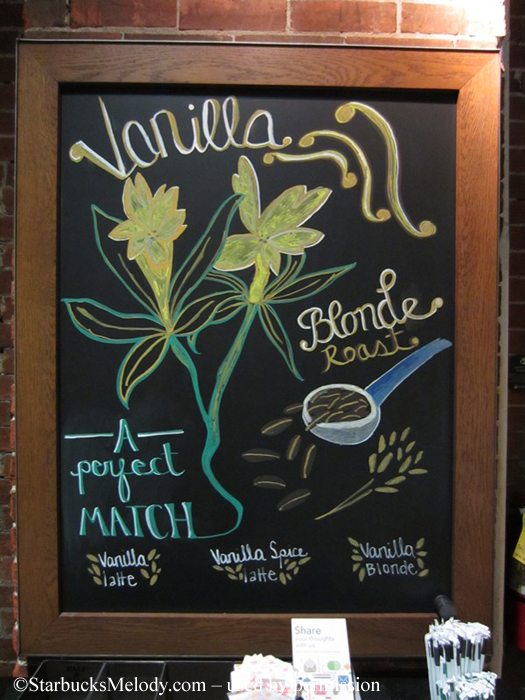 Vanilla
Blonde
Roast
A
perfect
MATCH
Vanilla
latte
Vanilla Spice
latte
Vanilla
Blonde
Share
your thoughts
with us
©StarbucksMelody.com – used by permission